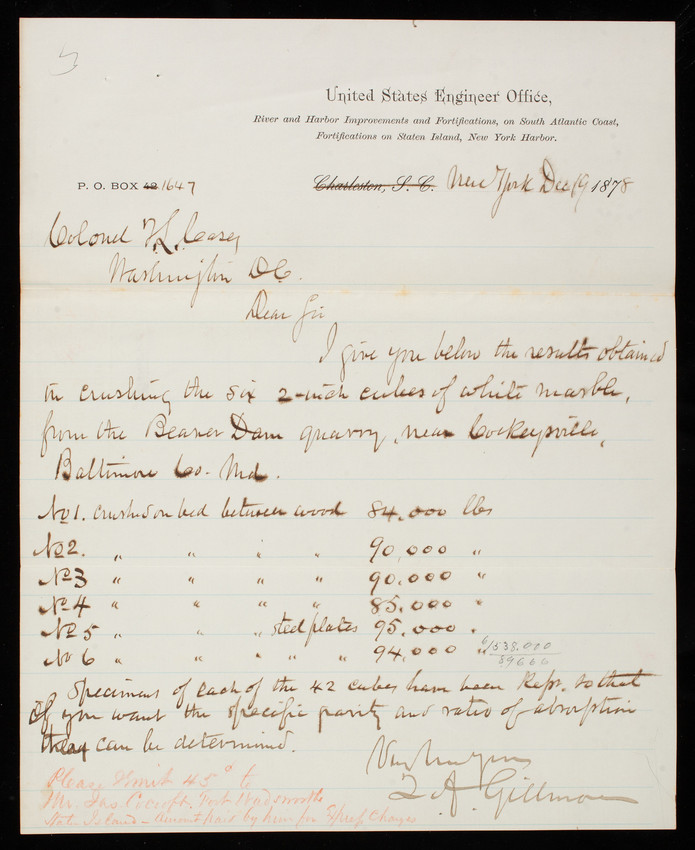 United States Engineer Office,
River and Harbor Improvements and Fortifications, on South Atlantic Coast,
Fortifications on Staten Island, New York Harbor.
P. O. BOX 42 1647
Charleston, S. C. New York Dec 19 1878
Colonel T. L. Casey
Washington D.C.
Dear Sir
I give you below the results obtained
in crushing the six 2-inch cubes of white marble,
from the Beaver Dam quarry, near Cockeysville,
Baltimore Co. Md.
No 1. crushed on bed between wood 84,000 lbs
No 2. " " " " 90,000 "
No 3 " " " " 90,000 "
No 4 " " " " 85,000 "
No 5 " " " steel plates 95,000 "
No 6 " " " " " 94,000 "
6/538.000
89666
Specimens of each of the 42 cubes have been kept, so that
if you want the specific gravity and ratio of absorption
they can be determined.
Very truly yours
Q. A. Gillmore
Please Remit 45¢ to
Mr. Jas. Cocroft, Fort Wadsworth
Staten Island - Amount paid by him for Express Charges